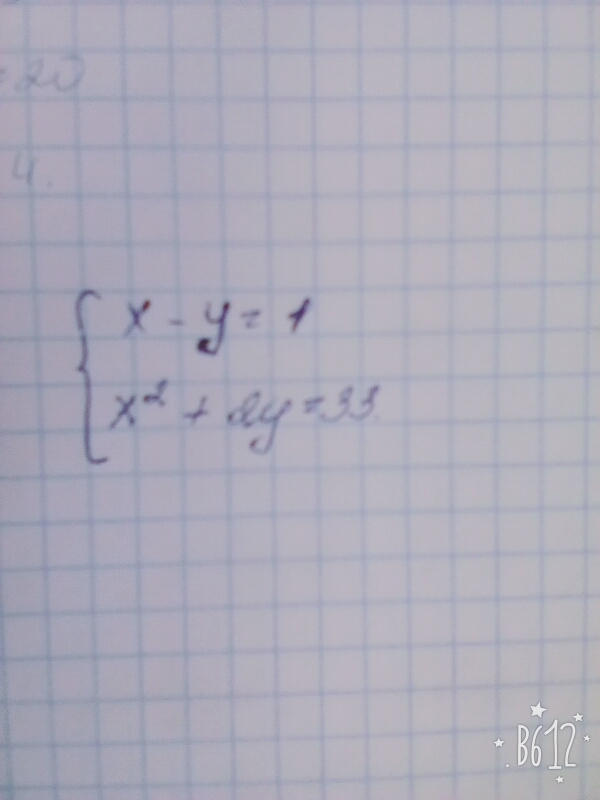 =20
4.
x - y = 1
x² + 2y = 33.
B612